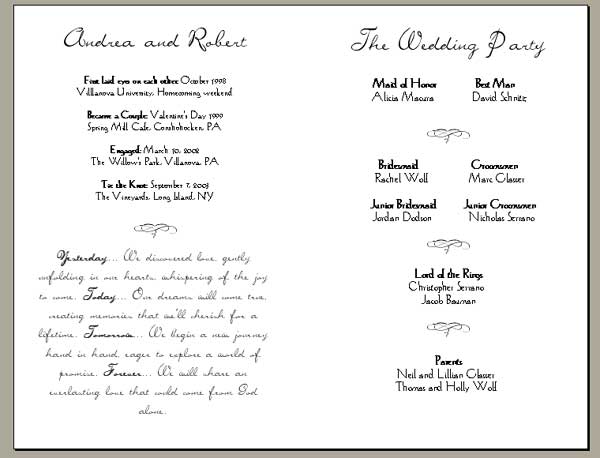 Andrea and Robert
First laid eyes on each other: October 1998
Villanova University, Homecoming weekend
Became a Couple: Valentine's Day 1999
Spring Mill Cafe, Conshohocken, PA
Engaged: March 10, 2002
The Willow's Park, Villanova, PA
Tie the Knot: September 7, 2003
The Vineyards, Long Island, NY
Yesterday... We discovered love, gently
unfolding in our hearts, whispering of the joy
to come. Today... Our dreams will come true,
creating memories that we'll cherish for a
lifetime. Tomorrow... We begin a new journey,
hand in hand, eager to explore a world of
promise. Forever... We will share an
everlasting love that could come from God
alone.
The Wedding Party
Maid of Honor Best Man
Alicia David
Bridesmaid Groomsmen
Rachel Wolf Marc Glasser
Junior Bridesmaid Junior Groomsmen
Jordan Dodson Nicholas Serrano
Lord of the Rings
Christopher Serrano
Jacob Bauman
Parents
Neil and Lillian Glasser
Thomas and Holly Wolf